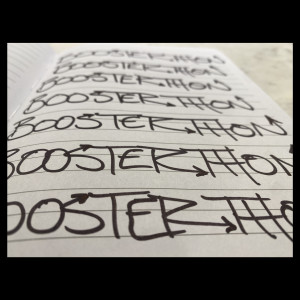 BOOSTER THON
BOOSTER THON
BOOSTER THON
BOOSTER THON
BOOSTER THON
BOOSTER THON
OOSTER THO